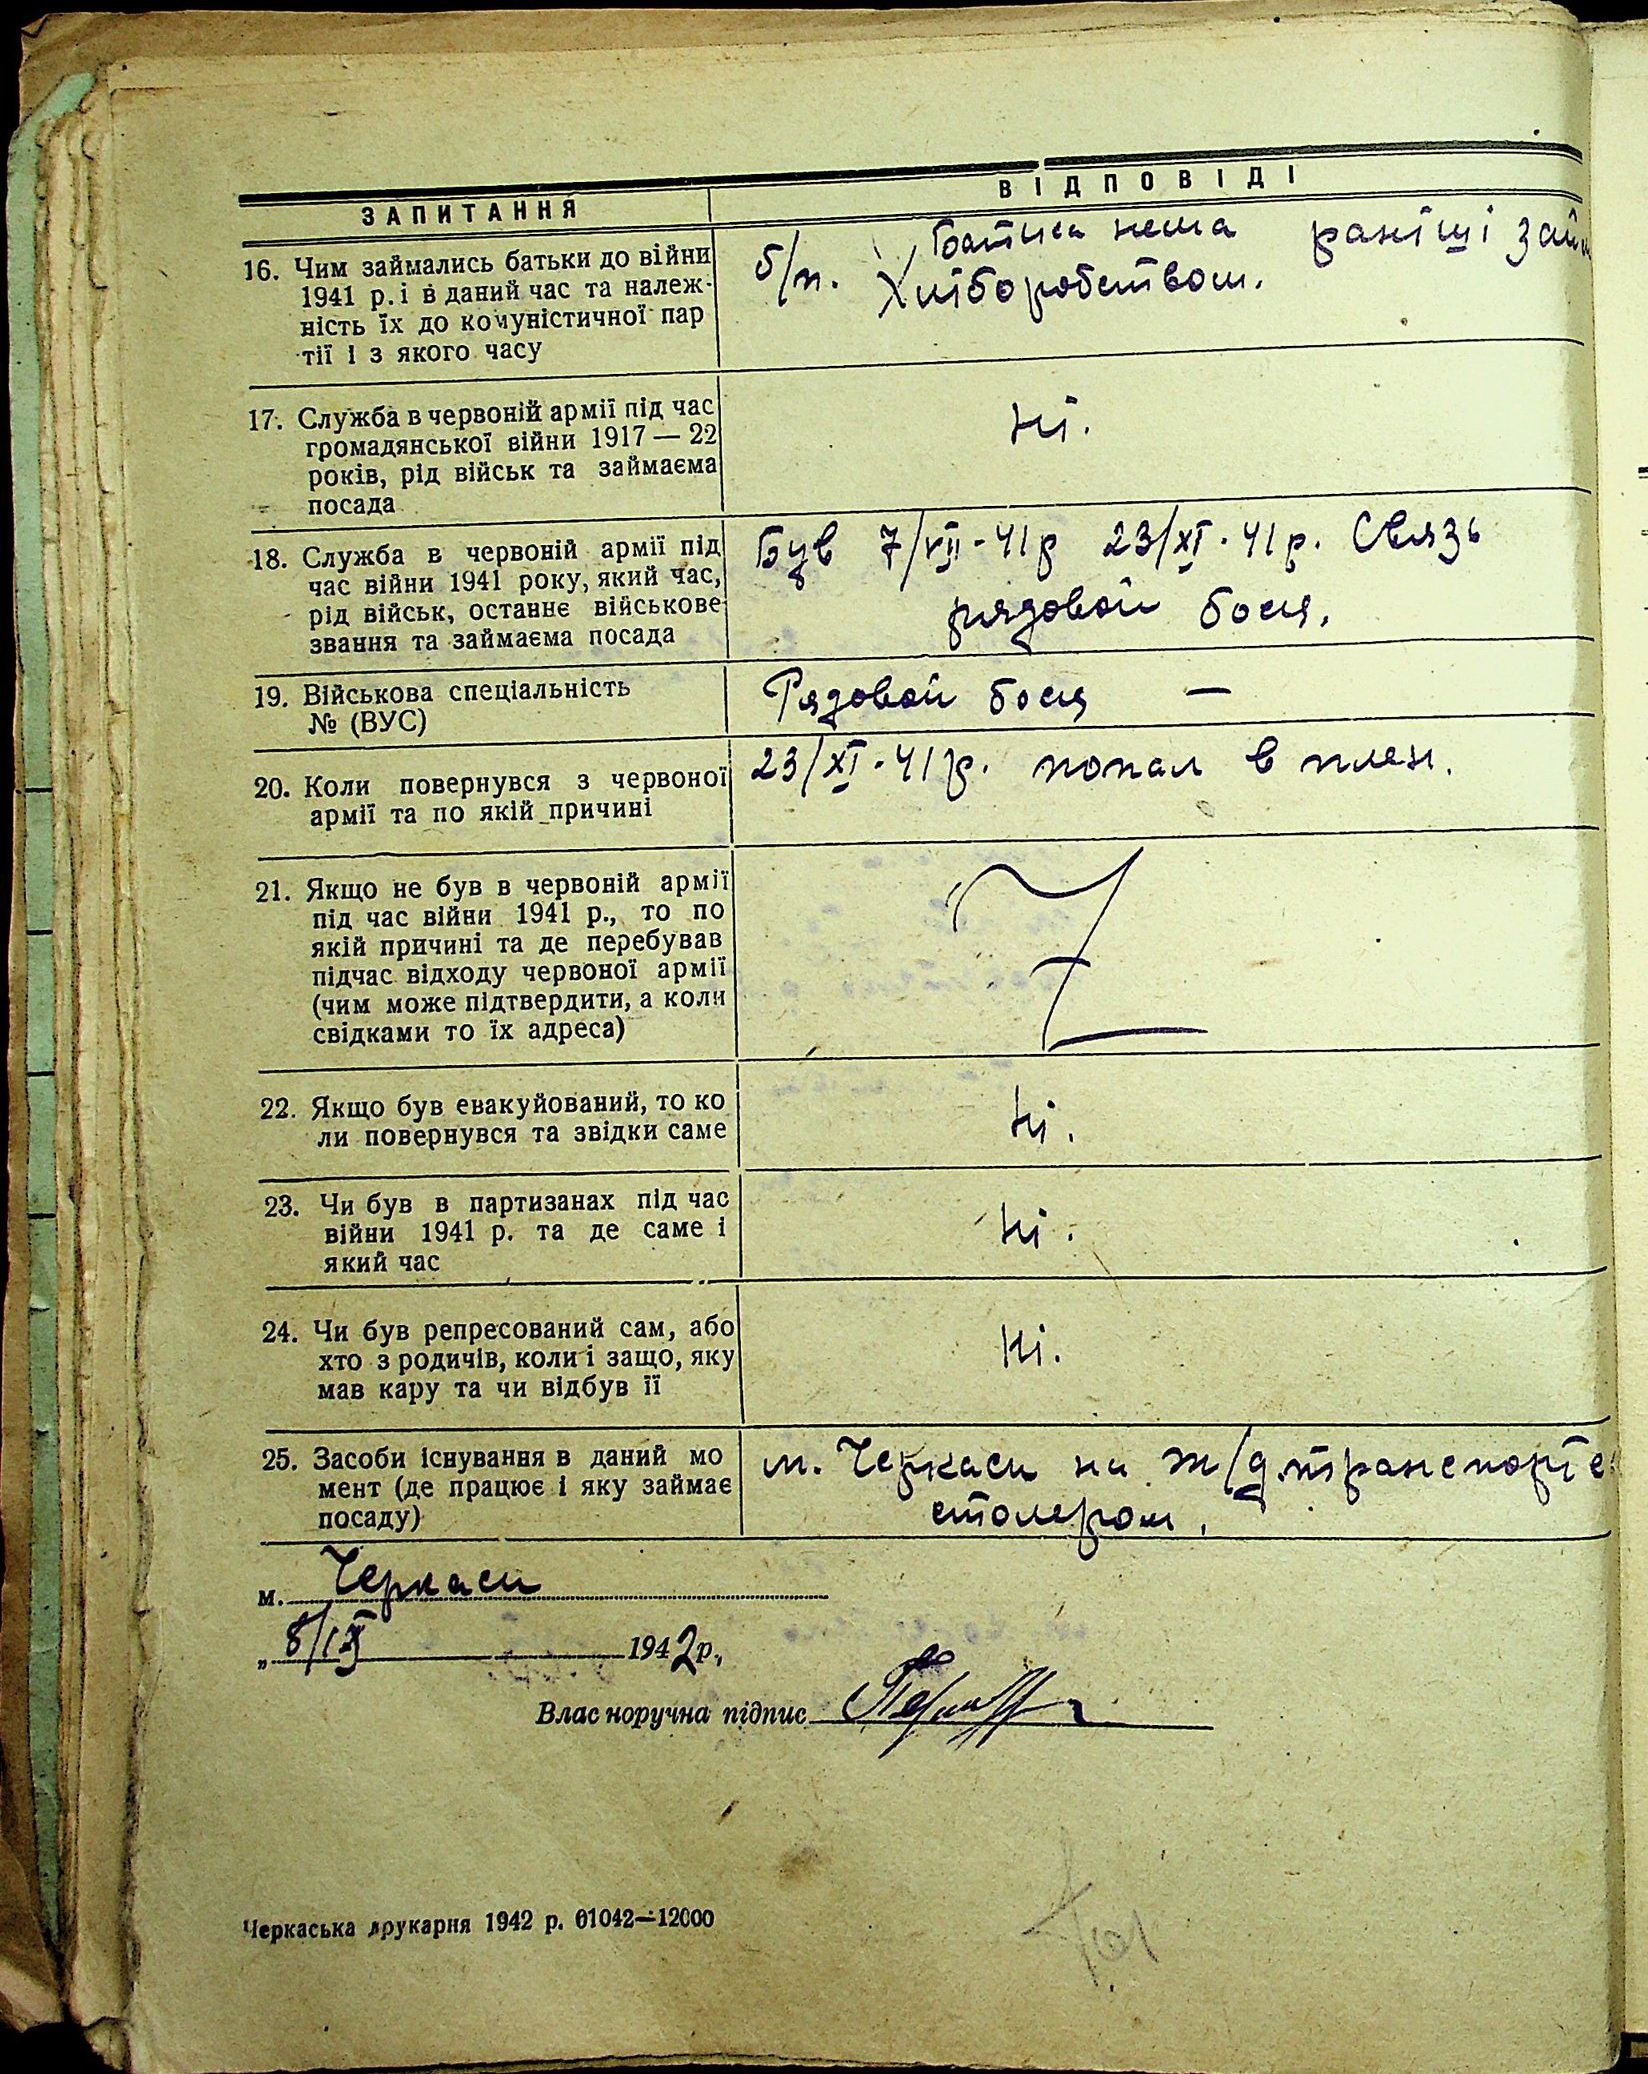 ЗАПИТАННЯ
ВІДПОВІДІ
16. Чим займались батьки до війни
1941 р. і в даний час та належ-
ність їх до комуністичної пар
тії і з якого часу
б/п. Батька нема раніші зай
Хліборобством.
17. Служба в червоній армії під час
громадянської війни 1917 — 22
років, рід військ та займаєма
посада
Ні.
18. Служба в червоній армії під
час війни 1941 року, який час,
рід військ, останнє військове
звання та займаєма посада
Був 7/VII-41р 23/XI-41р. Связь
рядовой боец.
19. Військова спеціальність
№ (ВУС)
Рядовой боец —
20. Коли повернувся з червоної
армії та по якій причині
23/XI-41р. попал в плен.
21. Якщо не був в червоній армії
під час війни 1941 р., то по
якій причині та де перебував
підчас відходу червоної армії
(чим може підтвердити, а коли
свідками то їх адреса)
22. Якщо був евакуйований, то ко
ли повернувся та звідки саме
Ні.
23. Чи був в партизанах під час
війни 1941 р. та де саме і
який час
Ні.
24. Чи був репресований сам, або
хто з родичів, коли і защо, яку
мав кару та чи відбув її
Ні.
25. Засоби існування в даний мо
мент (де працює і яку займає
посаду)
м. Черкаси на ж/д. транспорте
столером.
м. Черкаси
„ 8/IX 1942 р.,
Влас норучна підпис
Черкаська друкарня 1942 р. 01042—12000